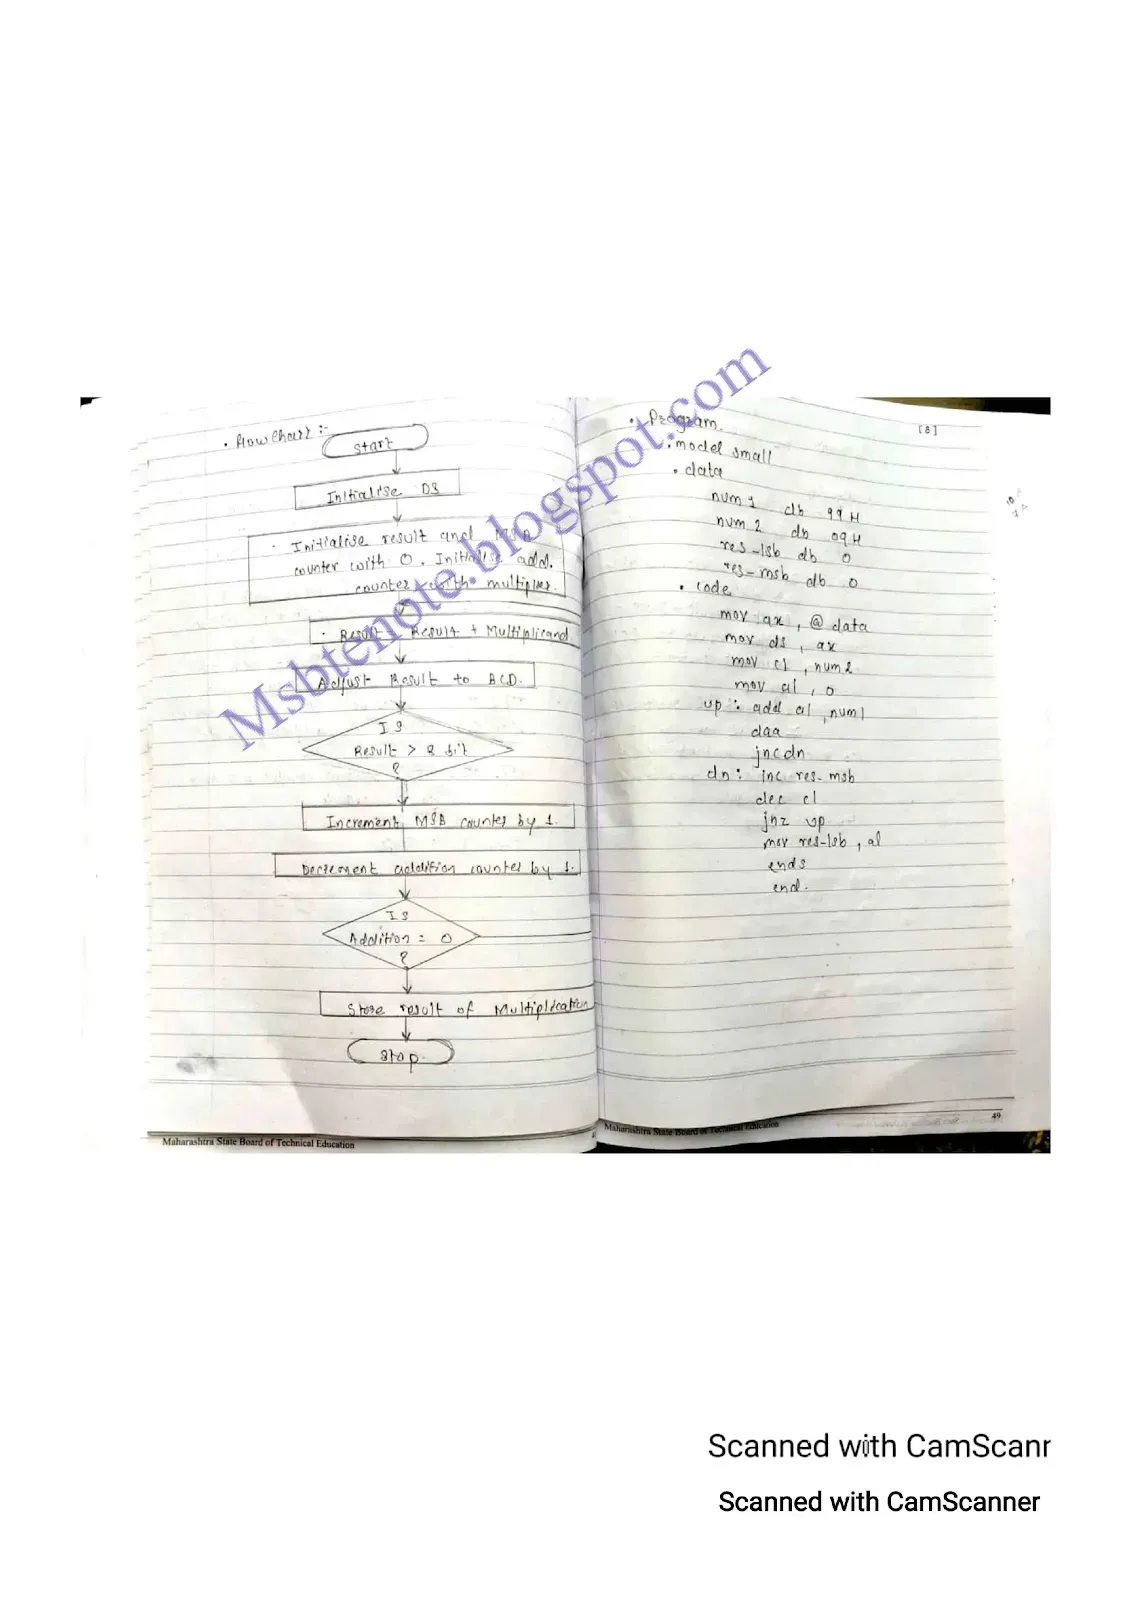 • Flowchart :-
Start
Initialise DS
• Initialise result and MSB
counter with 0. Initialise add.
counter with multiplier.
• Result = Result + Multiplicand
Adjust Result to BCD.
Is
Result > 8 bit
?
Increment MSB counter by 1.
Decrement addition counter by 1.
Is
Addition = 0
?
Store result of Multiplication
Stop.
Maharashtra State Board of Technical Education
• Program.
[B]
.model small
.data
num1 db 99H
num2 db 09H
res-lsb db 0
res-msb db 0
.code
mov ax, @data
mov ds, ax
mov cl, num2
mov al, 0
up: add al, num1
daa
jnc dn
dn: inc res-msb
dec cl
jnz up
mov res-lsb, al
ends
end.
49
Maharashtra State Board of Technical Education
Msbtenote.blogspot.com
Scanned with CamScanr
Scanned with CamScanner